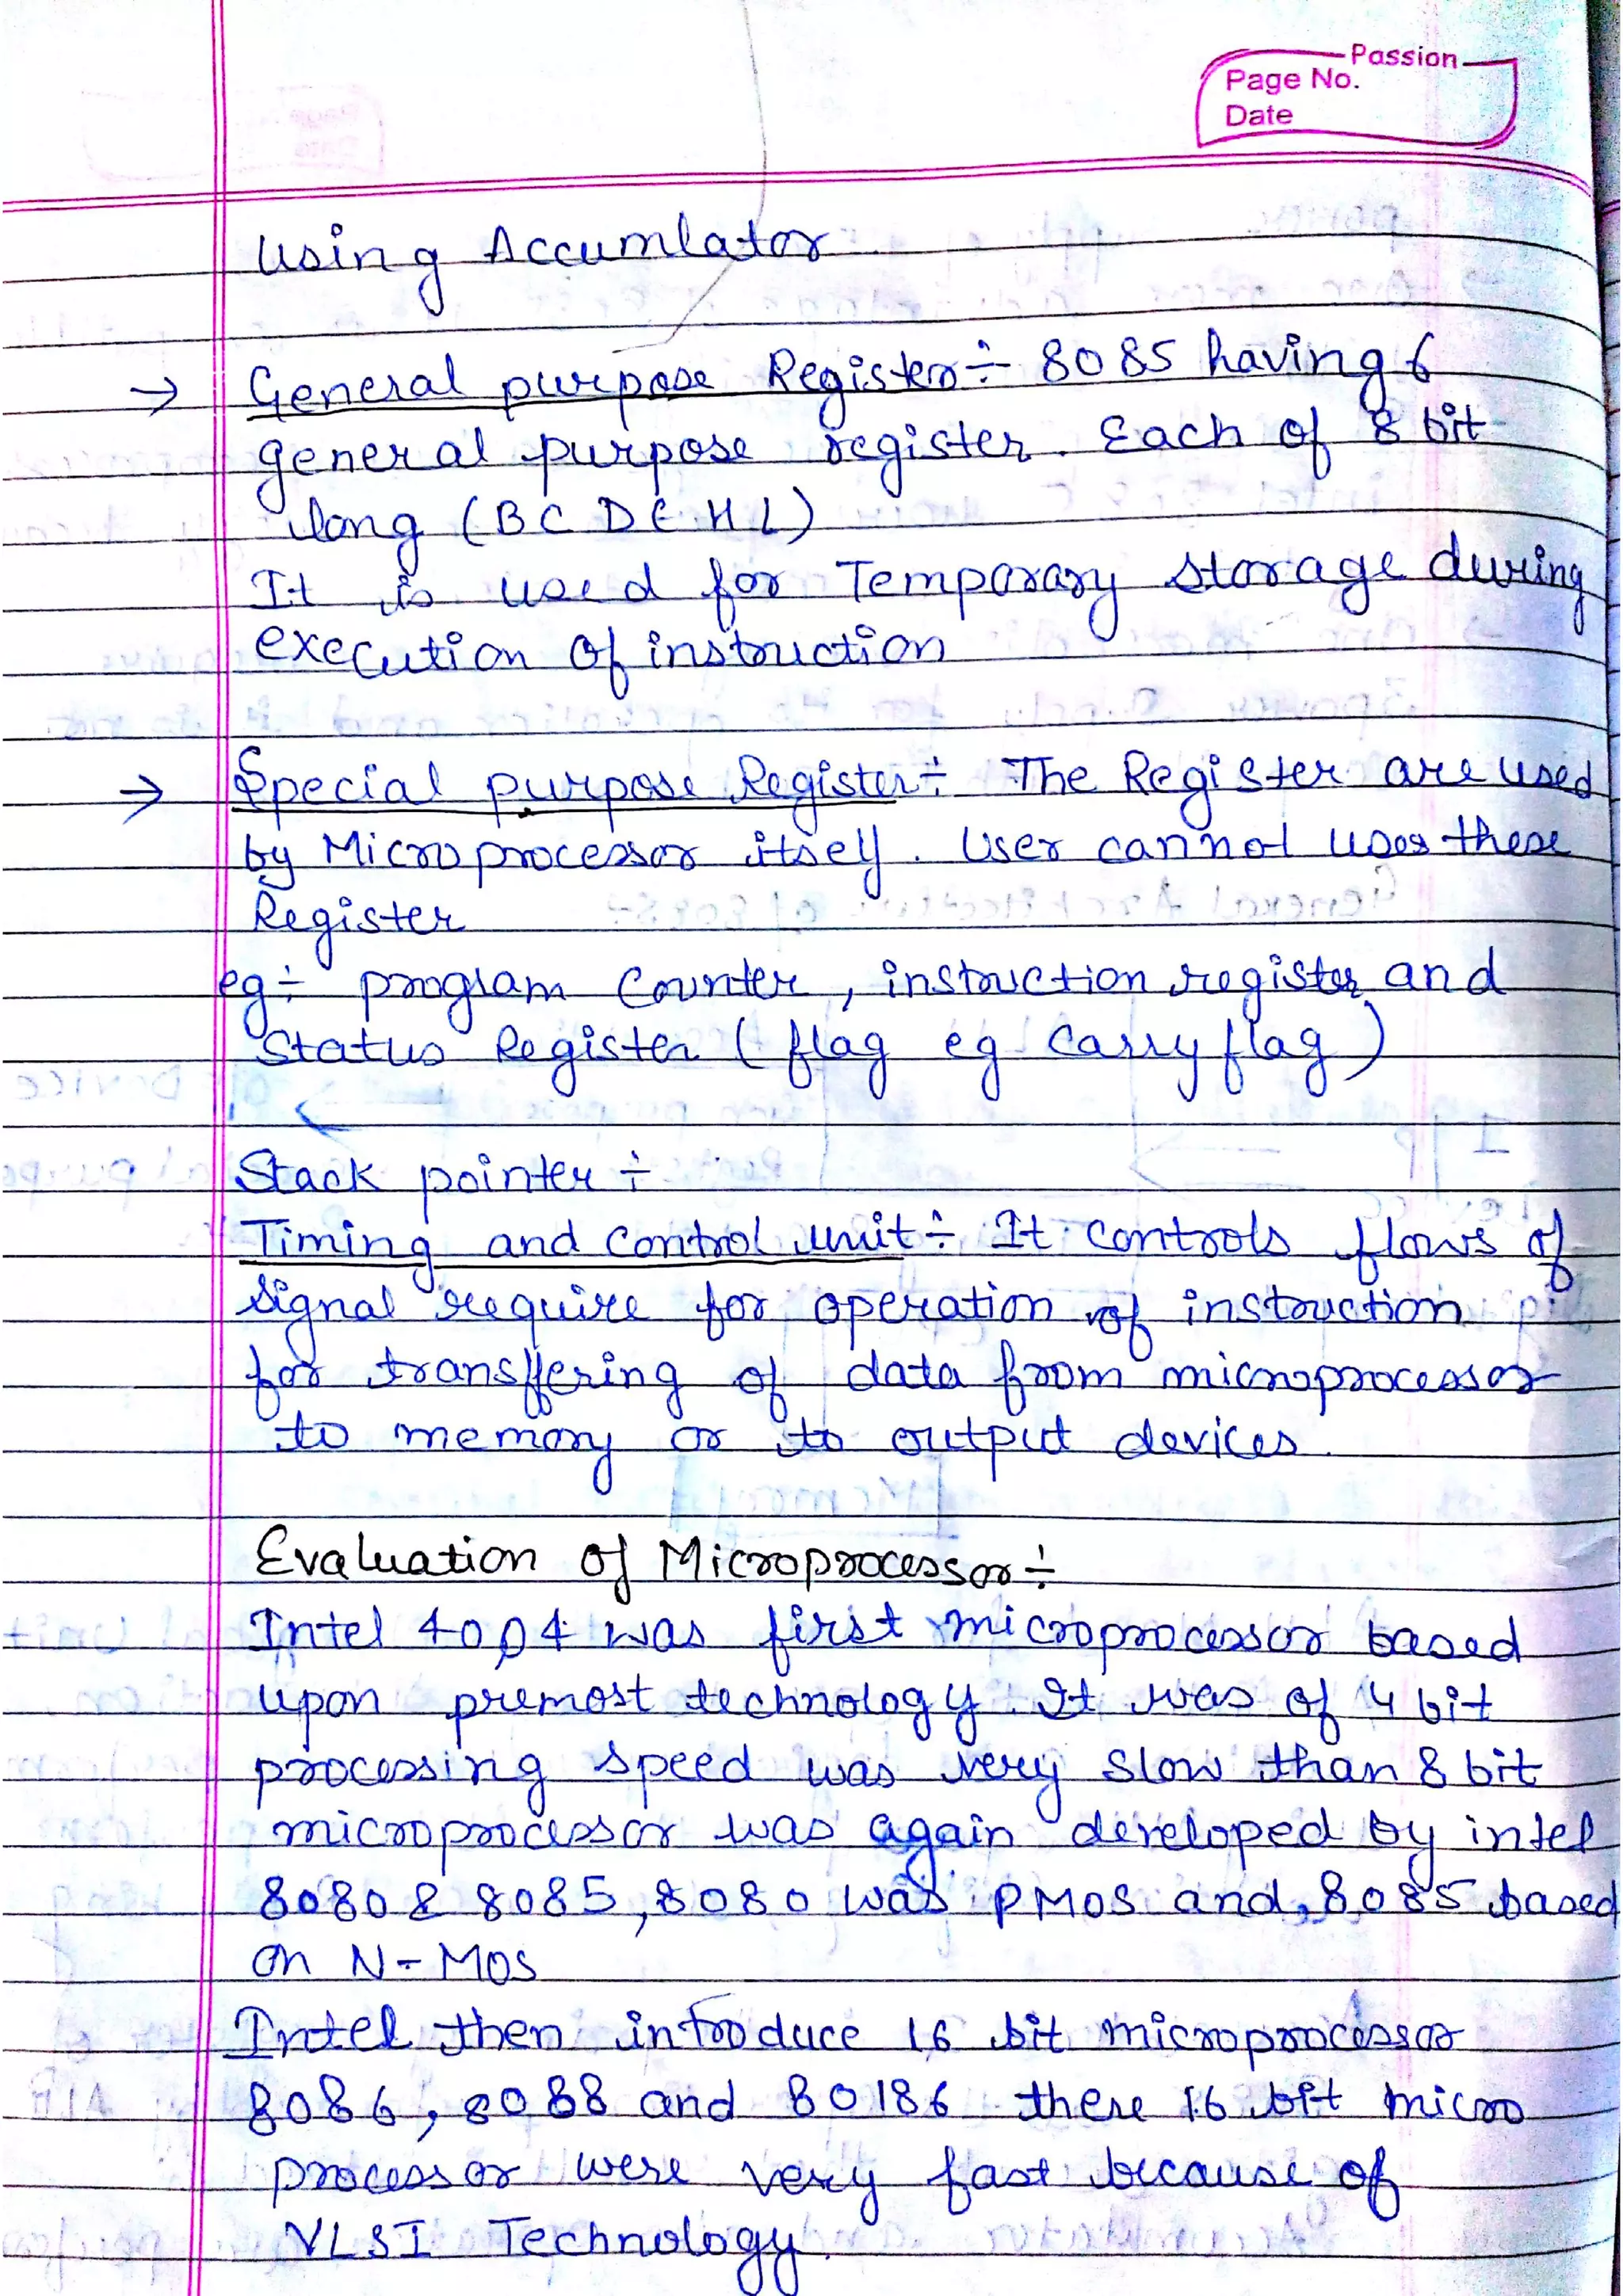 Passion
Page No.
Date
using Accumlator
→ General purpose Register÷ 8085 having 6
general purpose register. Each of 8 bit
long (BC DE HL)
It is used for Temporary storage during
execution of instruction
→ Special purpose Register÷ The Register are used
by Microprocessor itself. User cannot uses these
Register
eg÷ program Counter, instruction register and
Status Register (flag eg carry flag)
Stack pointer÷
Timing and control unit÷ It controls flows of
signal require for operation of instruction
for transffering of data from microprocessor
to memory or to output devices.
Evaluation of Microprocessor÷
Intel 4004 was first microprocessor based
upon premost technology. It was of 4 bit
processing speed was very slow than 8 bit
microprocessor was again developed by intel
8080 & 8085, 8080 was PMOS and, 8085 based
on N-MOS
Intel then introduce 16 bit microprocessor
8086, 8088 and 80186 there 16 bit micro
processor were very fast because of
VLSI Technology.